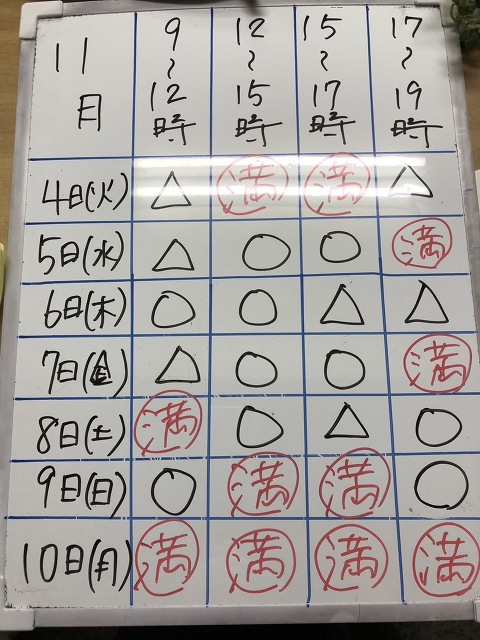 11月 9~12時 12~15時 15~17時 17~19時
4日(火) △ 満 満 △
5日(水) △ ○ ○ 満
6日(木) ○ ○ △ △
7日(金) △ ○ ○ 満
8日(土) 満 ○ △ ○
9日(日) ○ 満 満 ○
10日(月) 満 満 満 満